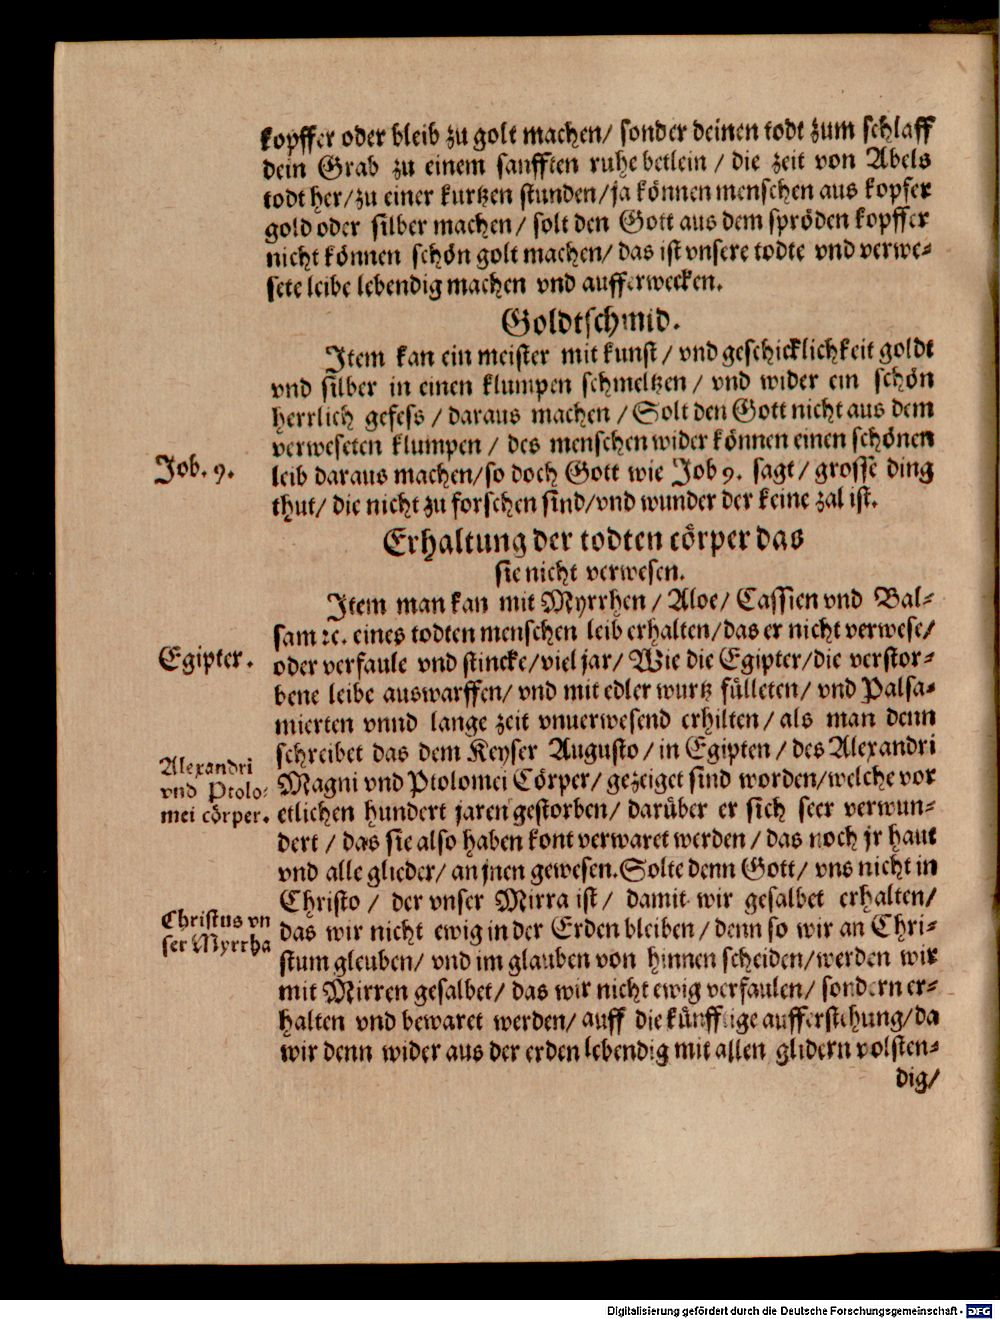 kopffer oder bleib zu golt machen/ sonder deinen todt zum schlaff
dein Grab zu einem sanfften ruhe betlein / die zeit von Abels
todt her/zu einer kurtzen stunden/ja können menschen aus kopfer
gold oder silber machen/ solt den Gott aus dem spröden kopffer
nicht können schön golt machen/ das ist vnsere todte vnd verwe-
sete leibe lebendig machen vnd aufferwecken.
Goldtschmid.
Item kan ein meister mit kunst / vnd geschicklichkeit goldt
vnd silber in einen klumpen schmeltzen / vnd wider ein schön
herrlich gefess / daraus machen / Solt den Gott nicht aus dem
verweseten klumpen / des menschen wider können einen schönen
Job. 9.
leib daraus machen/so doch Gott wie Job 9. sagt/ grosse ding
thut/ die nicht zu forschen sind/vnd wunder der keine zal ist.
Erhaltung der todten cörper das
sie nicht verwesen.
Item man kan mit Myrrhen / Aloe/ Cassien vnd Bal-
sam ꝛc. eines todten menschen leib erhalten/das er nicht verwese/
Egipter.
oder verfaule vnd stincke/viel jar/ Wie die Egipter/die verstor-
bene leibe auswarffen/ vnd mit edler wurtz fülleten/ vnd Palsa-
mierten vnnd lange zeit vnuerwesend erhilten/ als man denn
schreibet das dem Keyser Augusto / in Egipten / des Alexandri
Alexandri
vnd Ptolo-
mei cörper.
Magni vnd Ptolomei Cörper/ gezeiget sind worden/welche vor
etlichen hundert jaren gestorben/ darüber er sich seer verwun-
dert / das sie also haben kont verwaret werden / das noch jr haut
vnd alle glieder/ an jnen gewesen. Solte denn Gott/ vns nicht in
Christo / der vnser Mirra ist/ damit wir gesalbet erhalten/
Christus vn
ser Myrrha
das wir nicht ewig in der Erden bleiben/ denn so wir an Chri-
stum gleuben/ vnd im glauben von hinnen scheiden/werden wir
mit Mirren gesalbet/ das wir nicht ewig verfaulen/ sondern er-
halten vnd bewaret werden/ auff die künfftige aufferstehung/da
wir denn wider aus der erden lebendig mit allen glidern volsten-
dig/
Digitalisierung gefördert durch die Deutsche Forschungsgemeinschaft - DFG